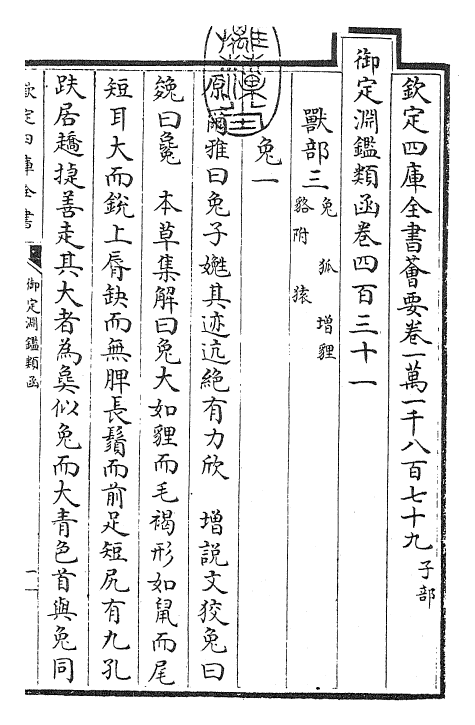 欽定四庫全書薈要卷一萬一千八百七十九 子部
御定淵鑑類函卷四百三十一
獸部三 兔 狐 增貍
貉附 猿
兔一
原爾雅曰兔子嬎其迹迒絕有力欣 增說文狡兔曰
㕙曰毚 本草集解曰兔大如貍而毛褐形如鼠而尾
短耳大而銳上脣缺而無脾長鬚而前足短尻有九孔
趺居趫捷善走其大者為㚟似兔而大青色首與兔同
欽定四庫全書
御定淵鑑類函
一